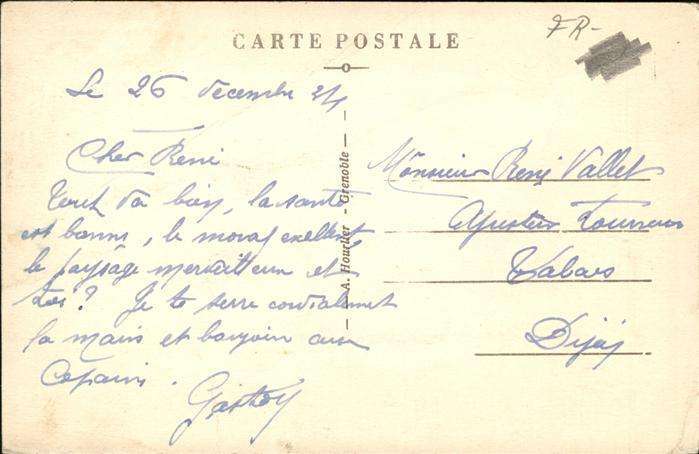 FR-
CARTE POSTALE
Le 26 décembre 34
Cher René
Tout va bien, la santé
est bonne, le moral excellent
le paysage merveilleux et
Je te serre cordialement
la main et bonjour aux
Copains.
Gaston
A. Hourlier - Grenoble
Monsieur René Vallet
Ajusteur Tourneur
Dijon